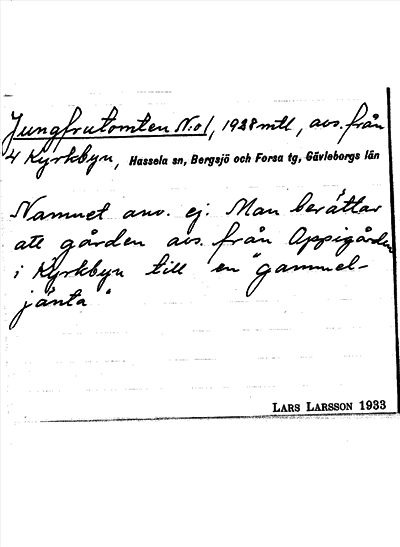 Jungfrutomten N:o 1, 1928 mtl, avs. från
4 Kyrkbyn, Hassela sn, Bergsjö och Forsa tg, Gävleborgs län
Namnet anv. ej. Man berättar
att gården avs. från Appigården
i Kyrkbyn till en "gammel-
jänta"
LARS LARSSON 1933